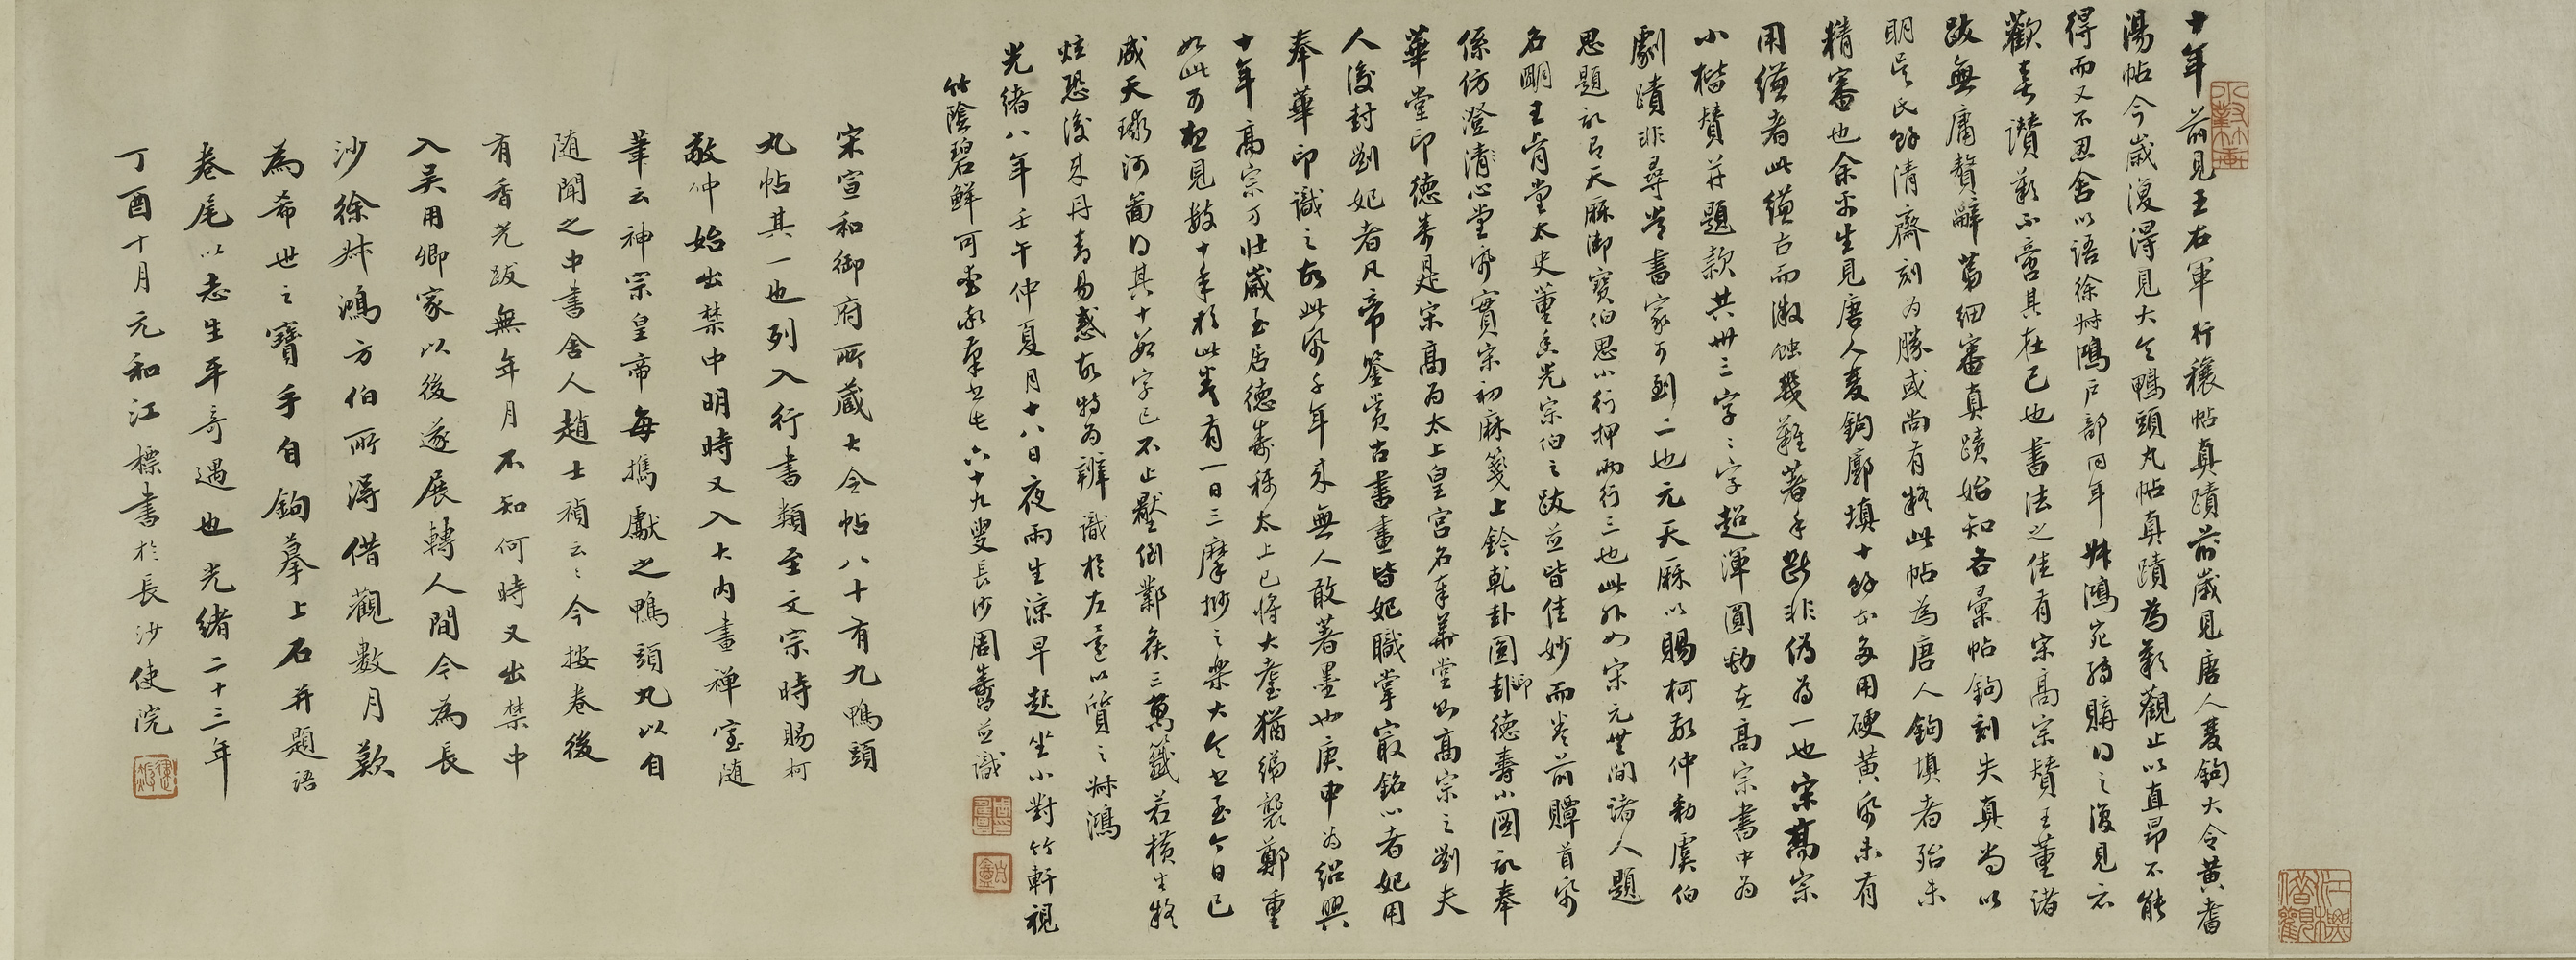 十年前見王右軍行穰帖真蹟前歲見唐人雙鉤大令黃耆
湯帖今歲復得見大令鴨頭丸帖真蹟為歎觀止以直昂不能
得而又不忍舍以語徐叔鴻戶部同年叔鴻宛轉購得之復見示
歡喜讚歎不啻其在己也書法之佳有宋高宗贊王董諸
跋無庸贅辭蕃細審真蹟始知各彙帖鉤刻失真尚以
明吳氏餘清齋刻為勝或尚有疑此帖為唐人鉤填者殆未
精審也余平生見唐人雙鉤廓填十餘本多用硬黃紙未有
用縑者此縑古而漸蝕幾難著手斷非偽為一也宋高宗
小楷贊并題款共卅三字字超渾圓勁在高宗書中為
劇蹟非尋常書家可到二也元天曆以賜柯敬仲勑虞伯
思題記有天曆御寶伯思小行押兩行三也此外如宋元無間諸人題
名明王肯堂太史董香光宗伯之跋並皆佳妙而卷前贉首紙
係仿澄清心堂紙實宋初麻箋上鈐乾卦圓印德壽小圓記奉
華堂印德壽是宋高為太上皇宮名奉華堂則高宗之劉夫
人後封劉妃者凡帝鑒賞古書畫皆妃職掌最銘心者妃用
奉華印識之故此紙千年來無人敢著墨也庚申為紹興
十年高宗方壯歲至居德壽稱太上已將大耋猶編襲鄭重
如此可想見數十年於此卷有一日三摩挲之樂大令書至今日已
成天球河圖得其十數字已不止壓倒鄴侯三萬籤若橫生疑
炫恐後來丹青易惑故特為辨識於左還以質之叔鴻
光緒八年壬午仲夏月十八日夜雨生涼早起坐小對竹軒視
竹陰碧鮮可愛欣然書此六十九叟長沙周壽昌並識
宋宣和御府所藏大令帖八十有九鴨頭
丸帖其一也列入行書類至文宗時賜柯
敬仲始出禁中明時又入大內畫禪室隨
筆云神宗皇帝每攜獻之鴨頭丸以自
隨聞之中書舍人趙士禎云云今按卷後
有香光跋無年月不知何時又出禁中
入吳用卿家以後遂展轉人間今為長
沙徐叔鴻方伯所得借觀數月歎
為希世之寶手自鉤摹上石并題語
卷尾以志生平奇遇也光緒二十三年
丁酉十月元和江標書於長沙使院